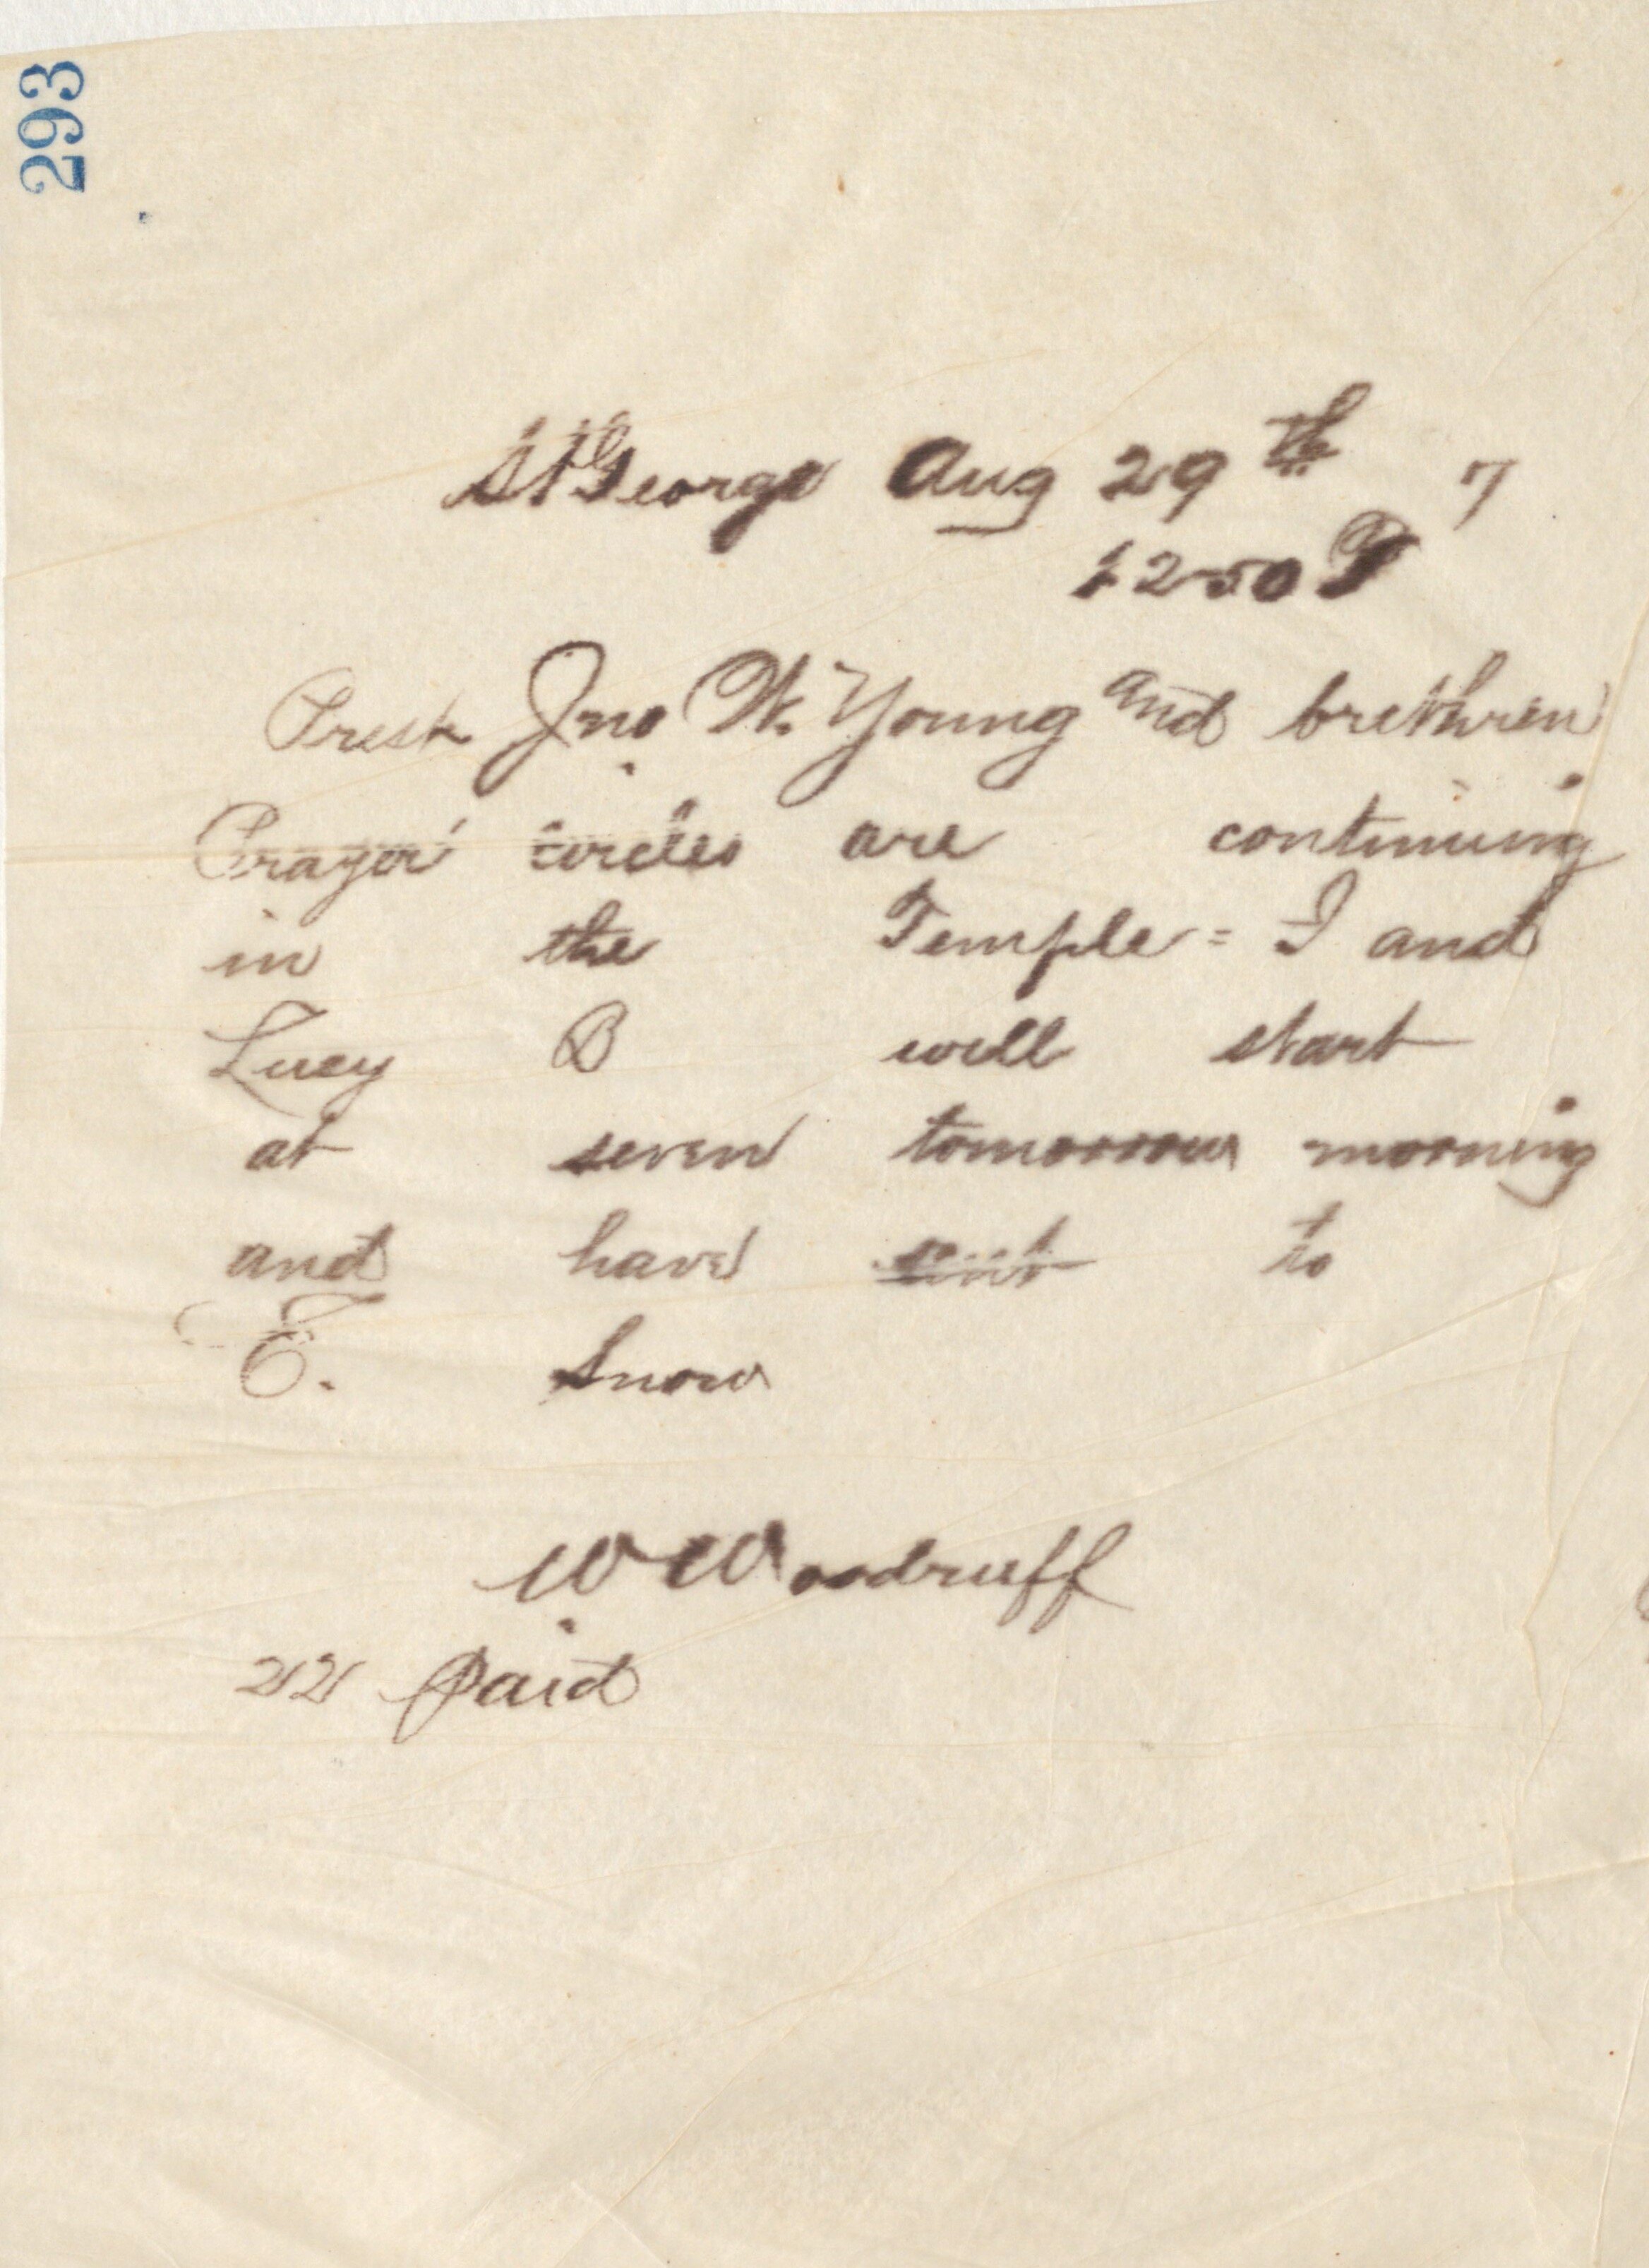 293
St George Aug 29th 7
1250 P
Prest Jno W. Young and brethren
Prayer circles are continuing
in the Temple = I and
Lucy B will start
at seven tomorrow morning
and have sent to
E. Snow
W Woodruff
22 Paid